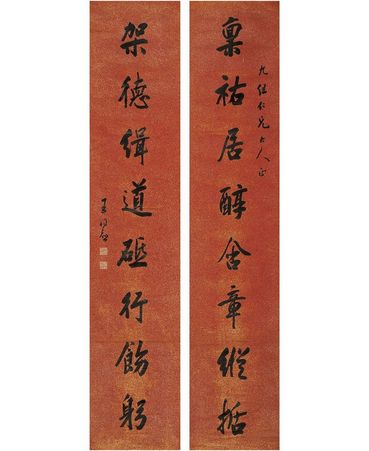 稟祜居醇含章縱
仁兄大人正
架德緝道砥行飭躬
王同愈